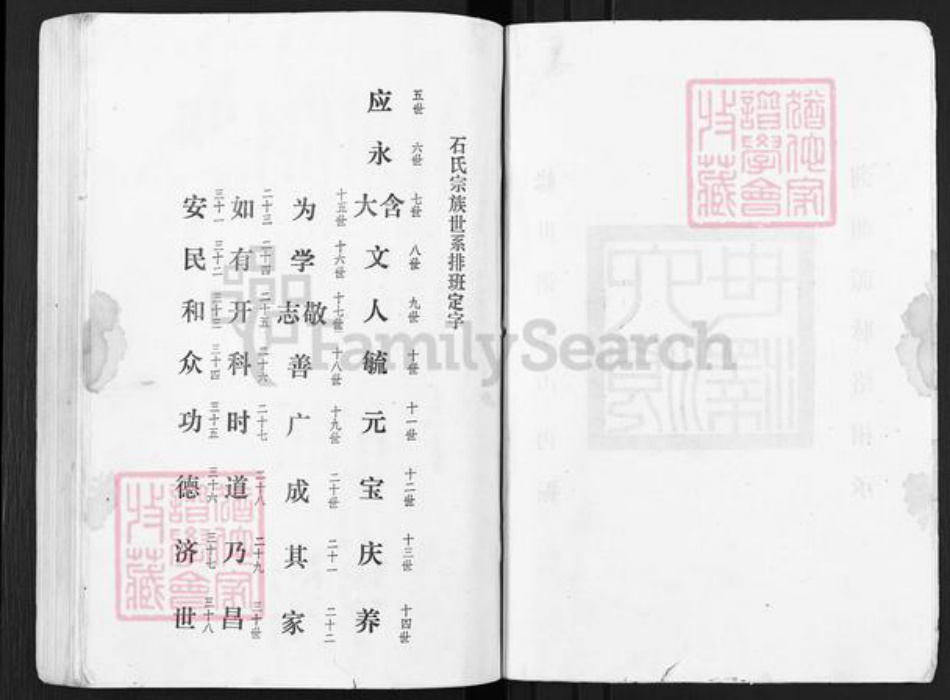 石氏宗族世系排班定字
五世 六世 七世 八世 九世 十世 十一世 十二世 十三世 十四世
应永大含文人毓元宝庆养
十五世 十六世 十七世 十八世 十九世 二十世 二十一 二十二
为学志敬善广成其家
二十三 二十四 二十五 二十六 二十七 二十八 二十九 三十世
如有开科时道乃昌
三十一 三十二 三十三 三十四 三十五 三十六 三十七 三十八
安民和众功德济世
FamilySearch